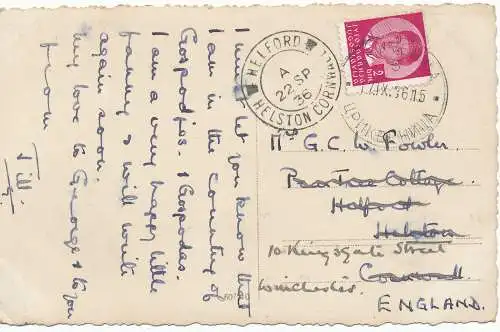 I must let you know that
I am in the country of
Gospodjas. & Gospodas.
I am a very happy little
funny & will write
again soon.
my love to George & to you
from
Tilli
HELFORD
A
22 SP
36
HELSTON CORNWALL
ЈУГОСЛАВИЈА
JUGOSLAVIJA
2
DIN.
ЦРИКВЕНИЦА
Mrs G. C. W. Fowler.
Pear Tree Cottage
Helford
Helston
10 Kingsgate Street
Winchester.
Cornwall
ENGLAND.